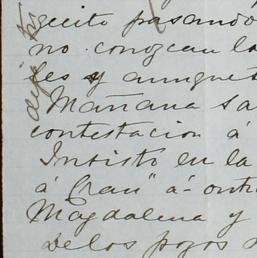 guito pasando
no conozcan la
fes y aunque
Mañana sa
contestacion á
Insisto en la
á "Gran" á ontr
Magdalena y
De los pozos